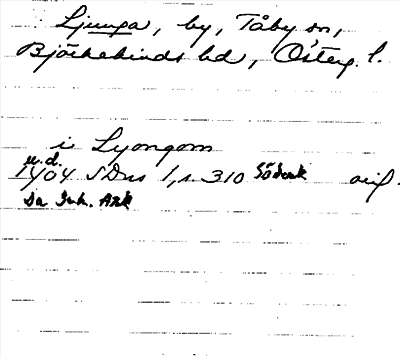 Ljunga, by, Tåby sn,
Björkekinds hd, Österg. l.
i Lyongom
u.d.
1404 SDns 1, s. 310 Söderk orig.
Sa Ink. Ark